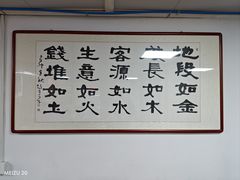 地段如金
長如木
客源如水
生意如火
錢堆如土
MEIZU 20